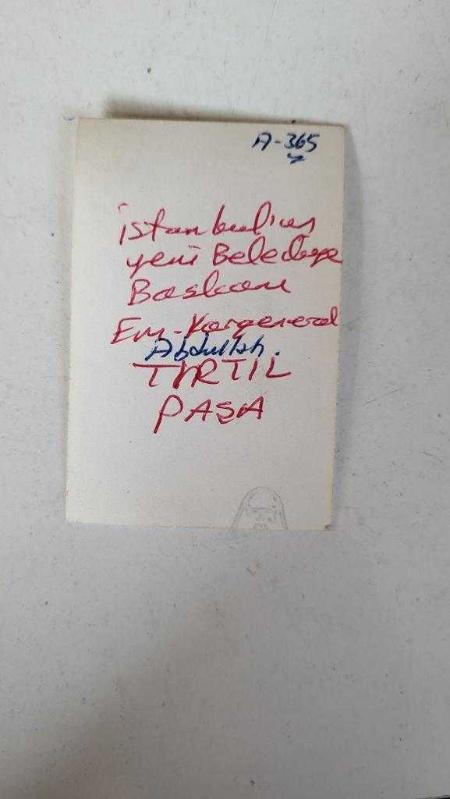 A-365
istanbulun
yeni Belediye
Başkanı
Em. Korgeneral
Abdullah
TIRTIL
PAŞA